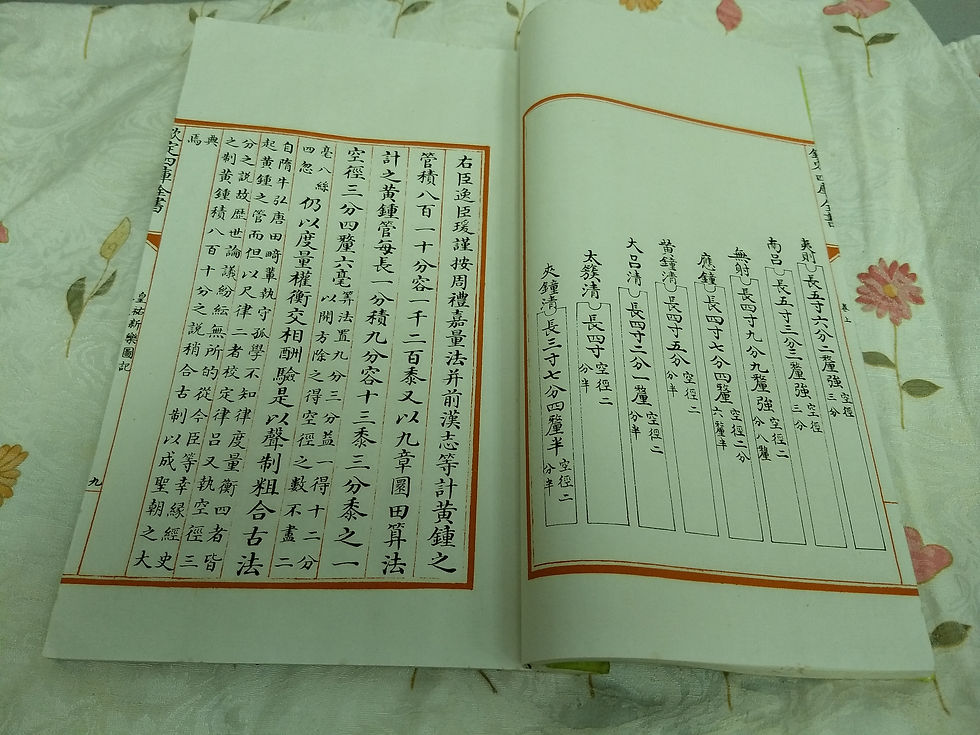 欽定四庫全書
卷上
夷則 長五寸六分二釐強 空徑三分
南呂 長五寸三分三釐強 空徑三分
無射 長四寸九分九釐強 空徑二分八釐
應鐘 長四寸七分四釐 空徑二分六釐半
黃鐘清 長四寸五分 空徑二分半
大呂清 長四寸二分一釐 空徑二分半
太簇清 長四寸 空徑二分半
夾鐘清 長三寸七分四釐半 空徑二分半
右臣逸臣瑗謹按周禮嘉量法并前漢志等計黃鍾之
管積八百一十分容一千二百黍又以九章圜田算法
計之黃鍾管每長一分積九分容十三黍三分黍之一
空徑三分四釐六毫
算法置九分三分益一得十二分
以開方除之得空徑之數不盡二
毫八絲
四忽
仍以度量權衡交相酬驗是以聲制粗合古法
自隋牛弘唐田畸輩執守孤學不知律度量衡四者皆
起黃鍾之管而但以尺律二者校定律呂又執空徑三
分之說故歷世論議紛紜無所的從今臣等幸緣經史
之制黃鍾積八百十分之說稍合古制以成聖朝之大
典
焉
欽定四庫全書
皇祐新樂圖記
九